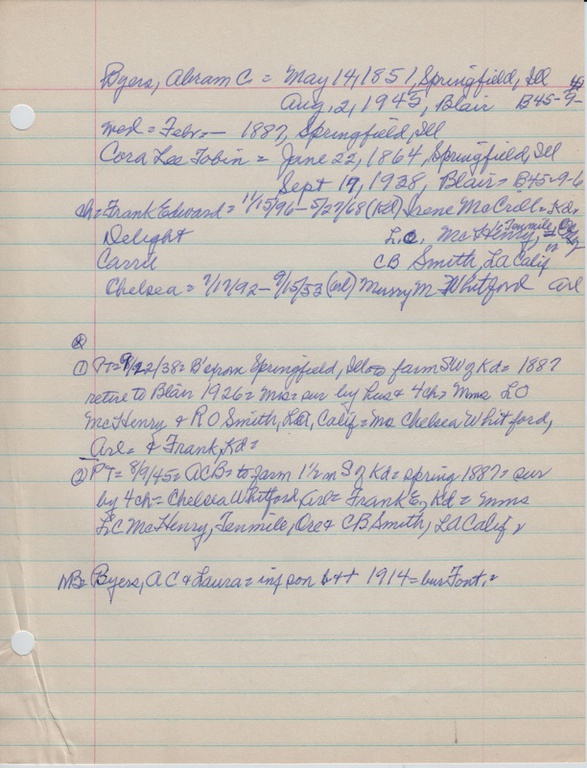 Byers, Abram C. = May 14, 1851, Springfield, Ill
Aug, 2, 1945, Blair B45-9-
wed = Febr = — 1887, Springfield, Ill
Cora Lee Tobin = June 22, 1864, Springfield, Ill
Sept 17, 1938, Blair = B45-9-6
ch = Frank Edward = 11/15/96 - 5/27/68 (Kd) Irene McCroll = Kd,
Delight L.C. McHenry, Tenmile, Ore
Carrie CB Smith, LA Calif
Chelsea = 7/17/92 - 9/15/53 (arl) Murry M Whitford arl
① PT = 9/22/38 = B's from Springfield, Ills to farm SW of Kd = 1887
retire to Blair 1926 = Mrs = sur by hus & 4ch = Mmes LO
McHenry & RO Smith, LA, Calif = Mrs Chelsea Whitford,
Arl = & Frank, Kd =
② PT = 8/9/45 = ACB = to farm 1½ m S of Kd = spring 1887 = sur
by 4ch = Chelsea Whitford, Arl = Frank E, Kd = Mmes
LC McHenry, Tenmile, Ore & CB Smith, LA Calif
NB = Byers, AC & Laura = inf son b++ 1914 = bur Font, =